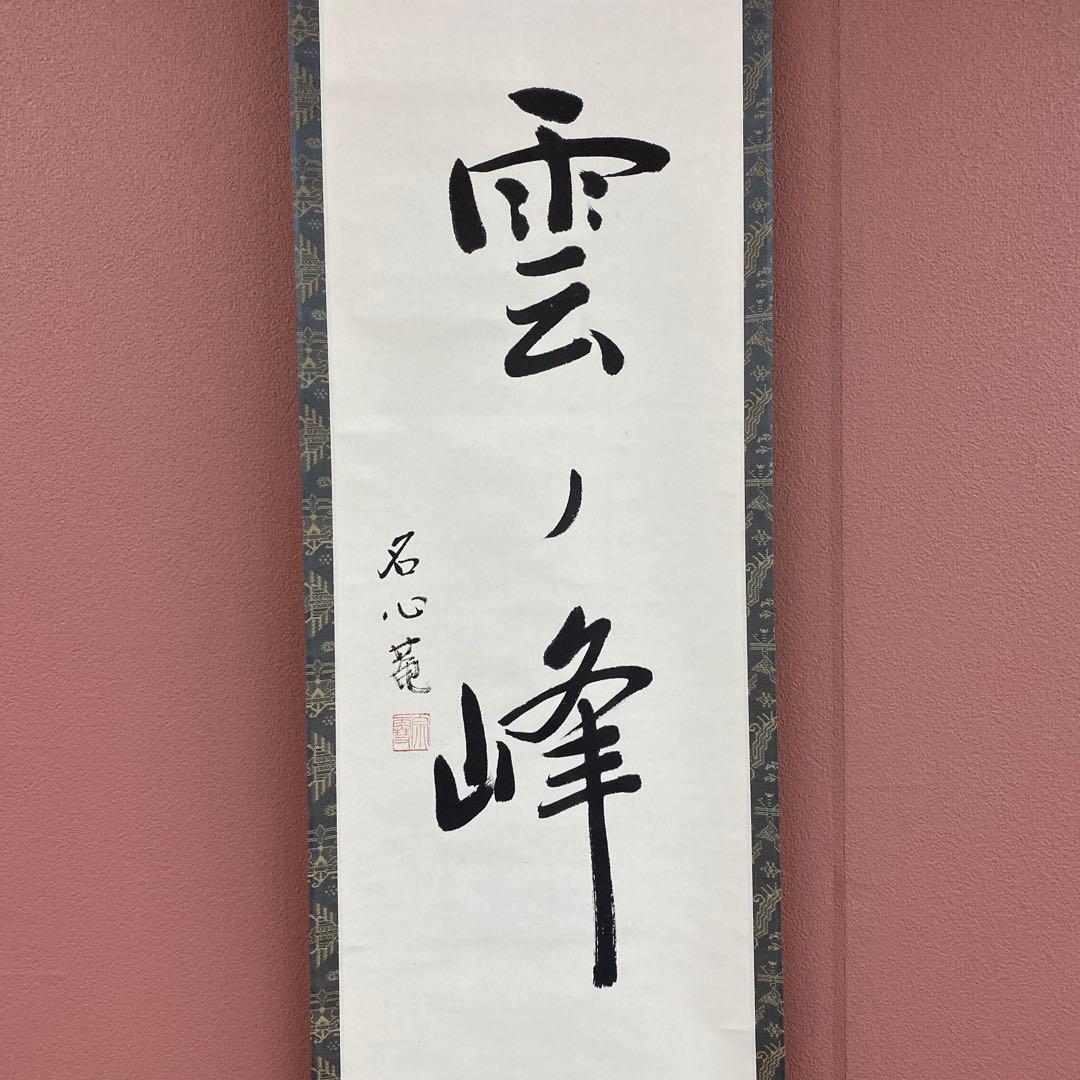 雲ノ峰
名心菴